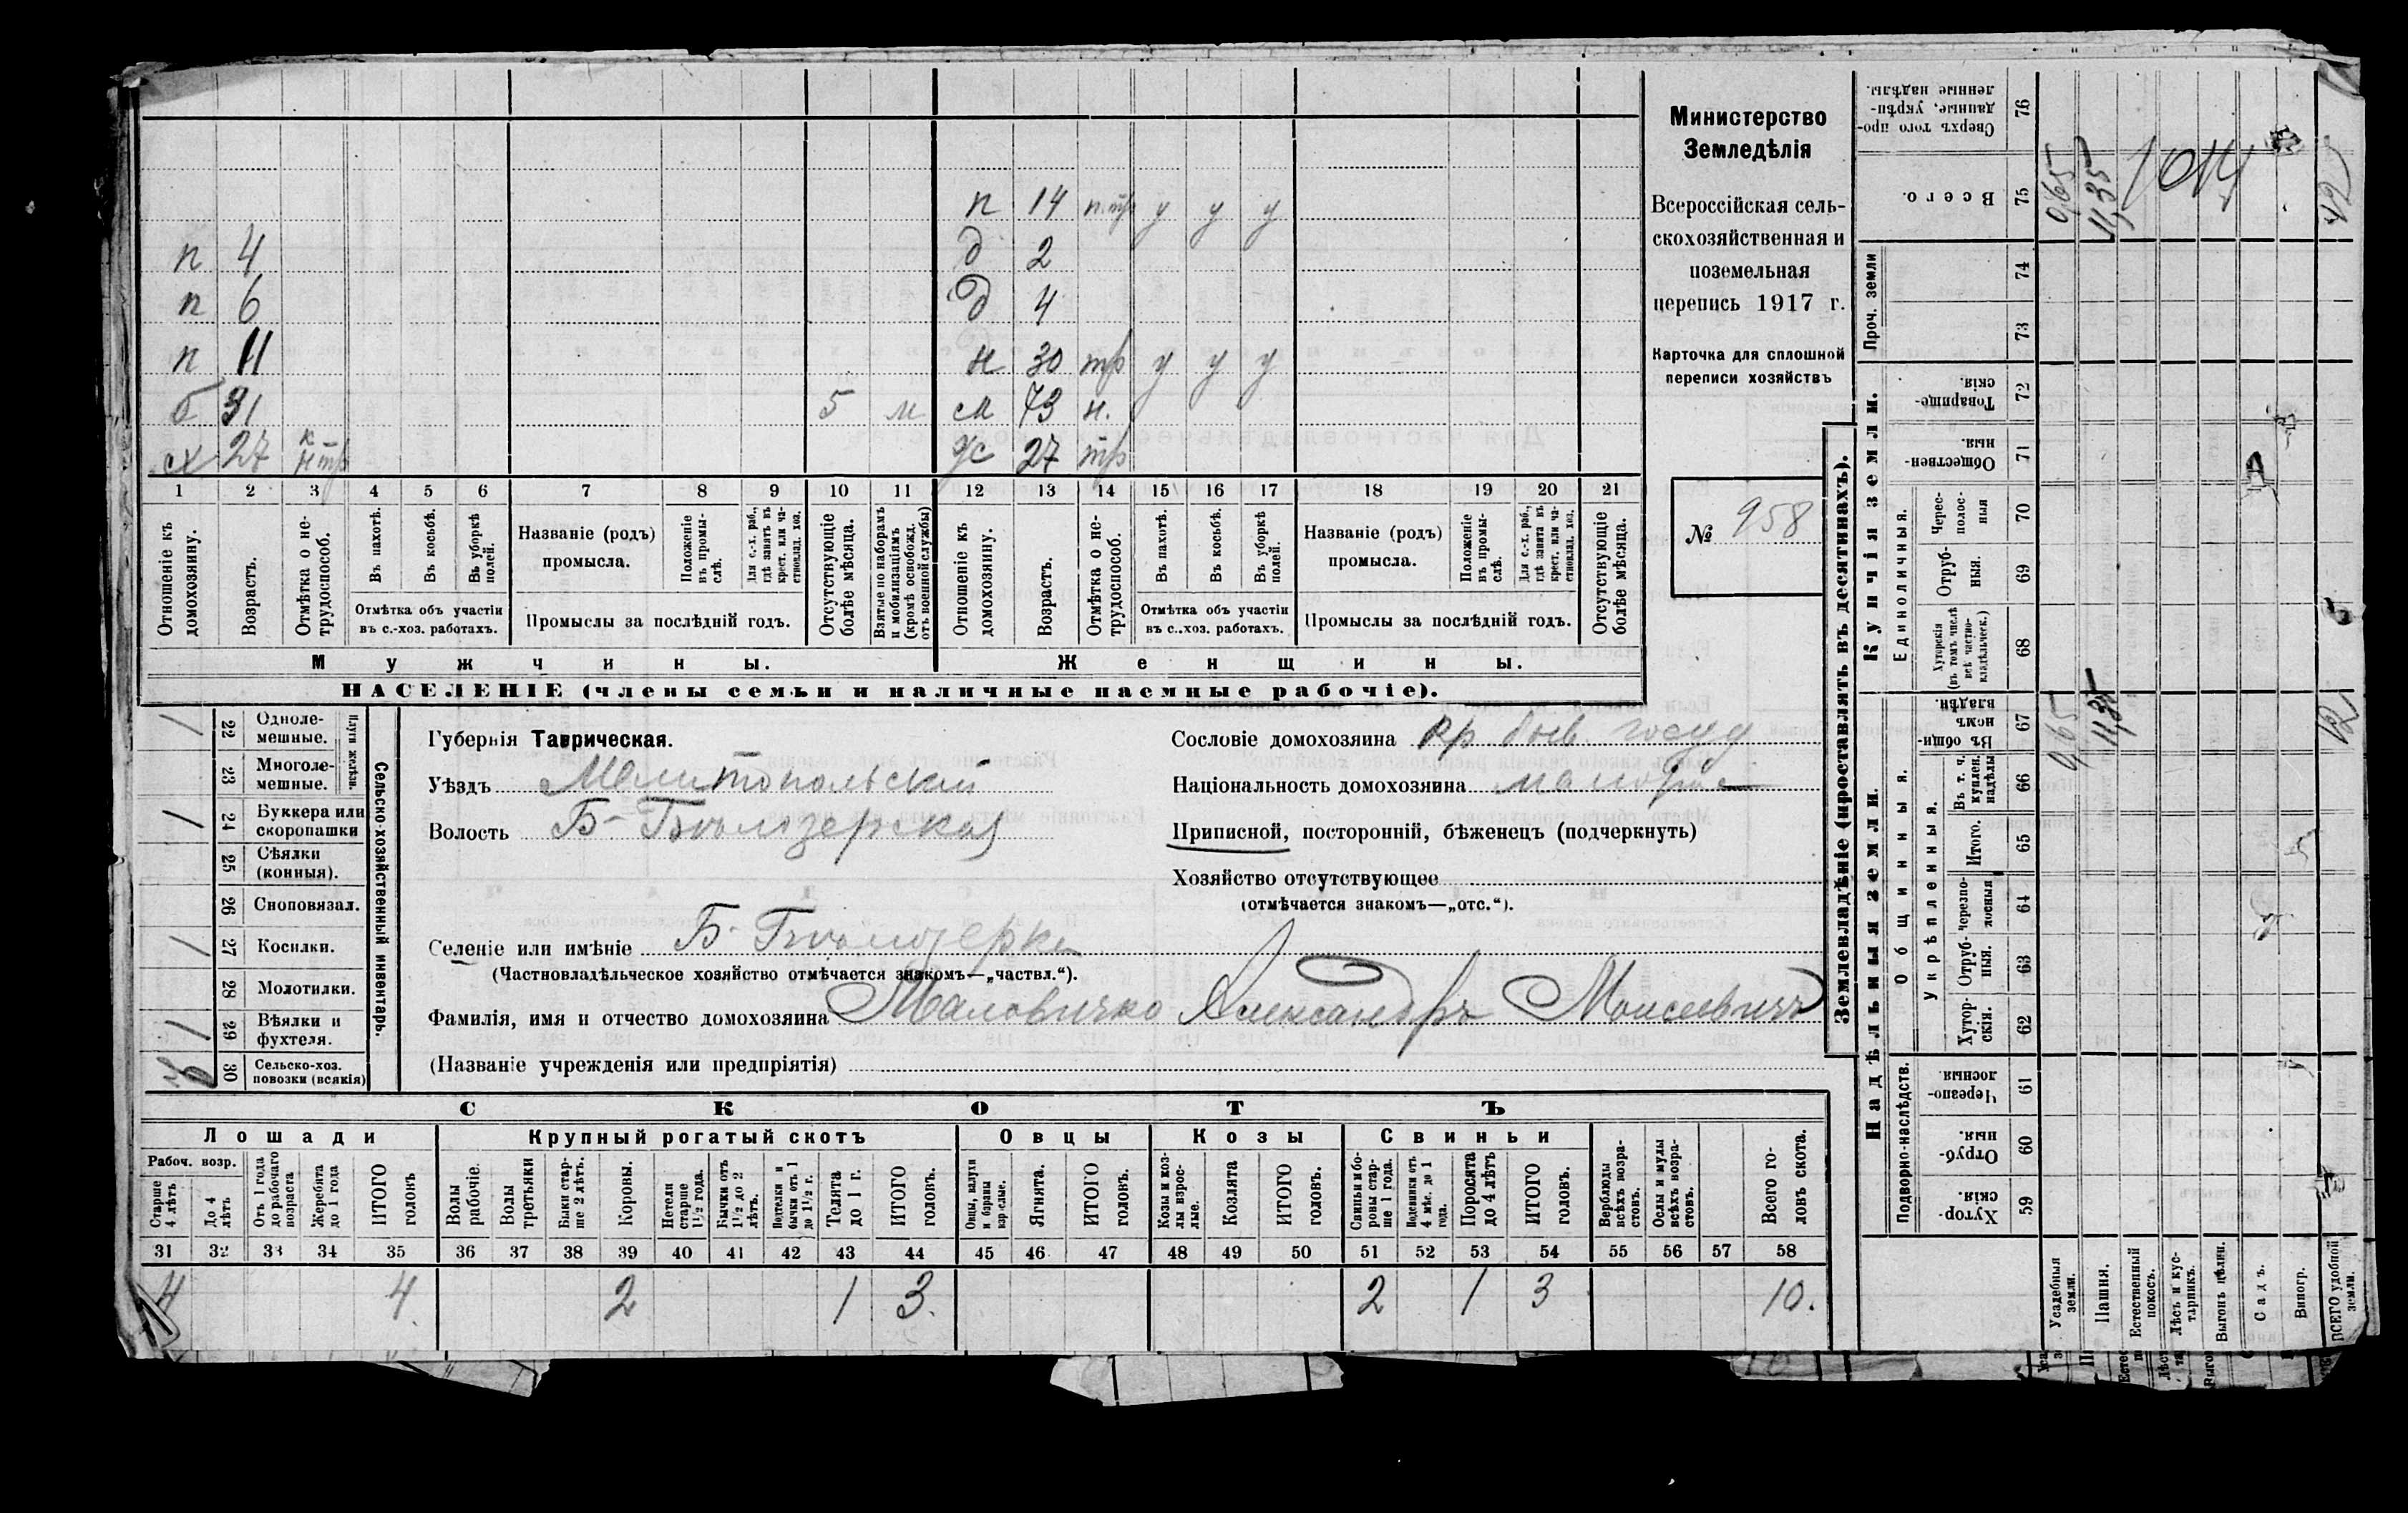 Министерство
Земледѣлія
Всероссійская сель-
скохозяйственная и
поземельная
перепись 1917 г.
Карточка для сплошной
переписи хозяйствъ
№ 958
п 14 у у у
п 4 д 2
п 6 д 4
п 11 н 30 тр у у у
б 31 5 м м 73 н.
сх 27 27 тр
1 2 3 4 5 6 7 8 9 10 11 12 13 14 15 16 17 18 19 20 21
Отношеніе къ домохозяину.
Возрастъ.
Отмѣтка о не-трудоспособ.
Въ пахотѣ.
Въ косьбѣ.
Въ уборкѣ полей.
Отмѣтка объ участіи
въ с.-хоз. работахъ.
Названіе (родъ)
промысла.
Положеніе въ промы-слѣ.
Для с.-х. раб., гдѣ занятъ въ крест. или ча-стновлад. хоз.
Промыслы за послѣдній годъ.
Отсутствующіе болѣе мѣсяца.
Взятые по наборамъ и мобилизаціямъ (кромѣ освобожд. отъ военной службы)
Отношеніе къ домохозяину.
Возрастъ.
Отмѣтка о не-трудоспособ.
Въ пахотѣ.
Въ косьбѣ.
Въ уборкѣ полей.
Отмѣтка объ участіи
въ с.-хоз. работахъ.
Названіе (родъ)
промысла.
Положеніе въ промы-слѣ.
Для с.-х. раб., гдѣ занята въ крест. или ча-стновлад. хоз.
Промыслы за послѣдній годъ.
Отсутствующіе болѣе мѣсяца.
Мужчины. Женщины.
НАСЕЛЕНІЕ (члены семьи и наличные наемные рабочіе).
Сельско-хозяйственный инвентарь.
Плуги желѣзн.
1 22 Одноле-мешные.
23 Многоле-мешные.
1 24 Буккера или скоропашки
25 Сѣялки (конныя).
26 Сноповязал.
1 27 Косилки.
28 Молотилки.
1 29 Вѣялки и фухтеля.
30 Сельско-хоз. повозки (всякія)
Губернія Таврическая.
Уѣздъ Мелитопольскій
Волость Б-Бѣлозерская
Селеніе или имѣніе Б-Бѣлозерка
(Частновладѣльческое хозяйство отмѣчается знакомъ—„частвл.“).
Фамилія, имя и отчество домохозяина Маловичко Александръ Моисеевичъ
(Названіе учрежденія или предпріятія)
Сословіе домохозяина кр быв. госуд
Національность домохозяина малорос
Приписной, посторонній, бѣженецъ (подчеркнуть)
Хозяйство отсутствующее
(отмѣчается знакомъ—„отс.“).
СКОТЪ
Лошади Крупный рогатый скотъ Овцы Козы Свиньи
Рабоч. возр.
Старше 4 лѣтъ
До 4 лѣтъ
Отъ 1 года до рабочаго возраста
Жеребята до 1 года
ИТОГО головъ
Волы рабочіе.
Волы третьяки
Быки стар-ше 2 лѣтъ.
Коровы.
Нетели старше 1½ года.
Бычки отъ 1½ до 2 лѣтъ.
Подтелки и бычки отъ 1 до 1½ г.
Телята до 1 г.
ИТОГО головъ.
Овцы, валухи и бараны взрослые.
Ягнята.
ИТОГО головъ.
Козы и коз-лы взрос-лые.
Козлята
ИТОГО головъ.
Свиньи и бо-ровы стар-ше 1 года.
Подсвинки отъ 4 мѣс. до 1 года.
Поросята до 4 лѣтъ
ИТОГО головъ.
Верблюды всѣхъ возра-стовъ.
Ослы и мулы всѣхъ возра-стовъ.
Всего го-ловъ скота.
31 32 33 34 35 36 37 38 39 40 41 42 43 44 45 46 47 48 49 50 51 52 53 54 55 56 57 58
4 4 2 1 3. 2 1 3 10.
Землевладѣніе (проставлять въ десятинахъ).
Надѣльныя земли. Купчія земли. Проч. земли
Подворно-наслѣдств.
Общинныя.
Укрѣпленныя.
Единоличныя.
Хутор-скія. 59
Отруб-ныя. 60
Черезпо-лосныя 61
Хутор-скія. 62
Отруб-ныя. 63
Черезпо-лосныя 64
Итого. 65
Въ т. ч. куплен. надѣлы 66
Въ общи-номъ владѣн. 67
Хуторскія (въ томъ числѣ всѣ частно-владѣльческ.) 68
Отруб-ныя. 69
Черес-полос-ныя 70
Обществен-ныя. 71
Товарище-скія. 72
73
74
Всего. 75
Сверхъ того про-данные, укрѣп-ленные надѣлы. 76
Усадебныя земли. 0,65 0,65
Пашня. 11,35 11,35
Естественный покосъ.
Лѣсъ и кус-тарникъ.
Выгонъ цѣлин.
Садъ.
Виногр.
ВСЕГО удобной земли. 12 12